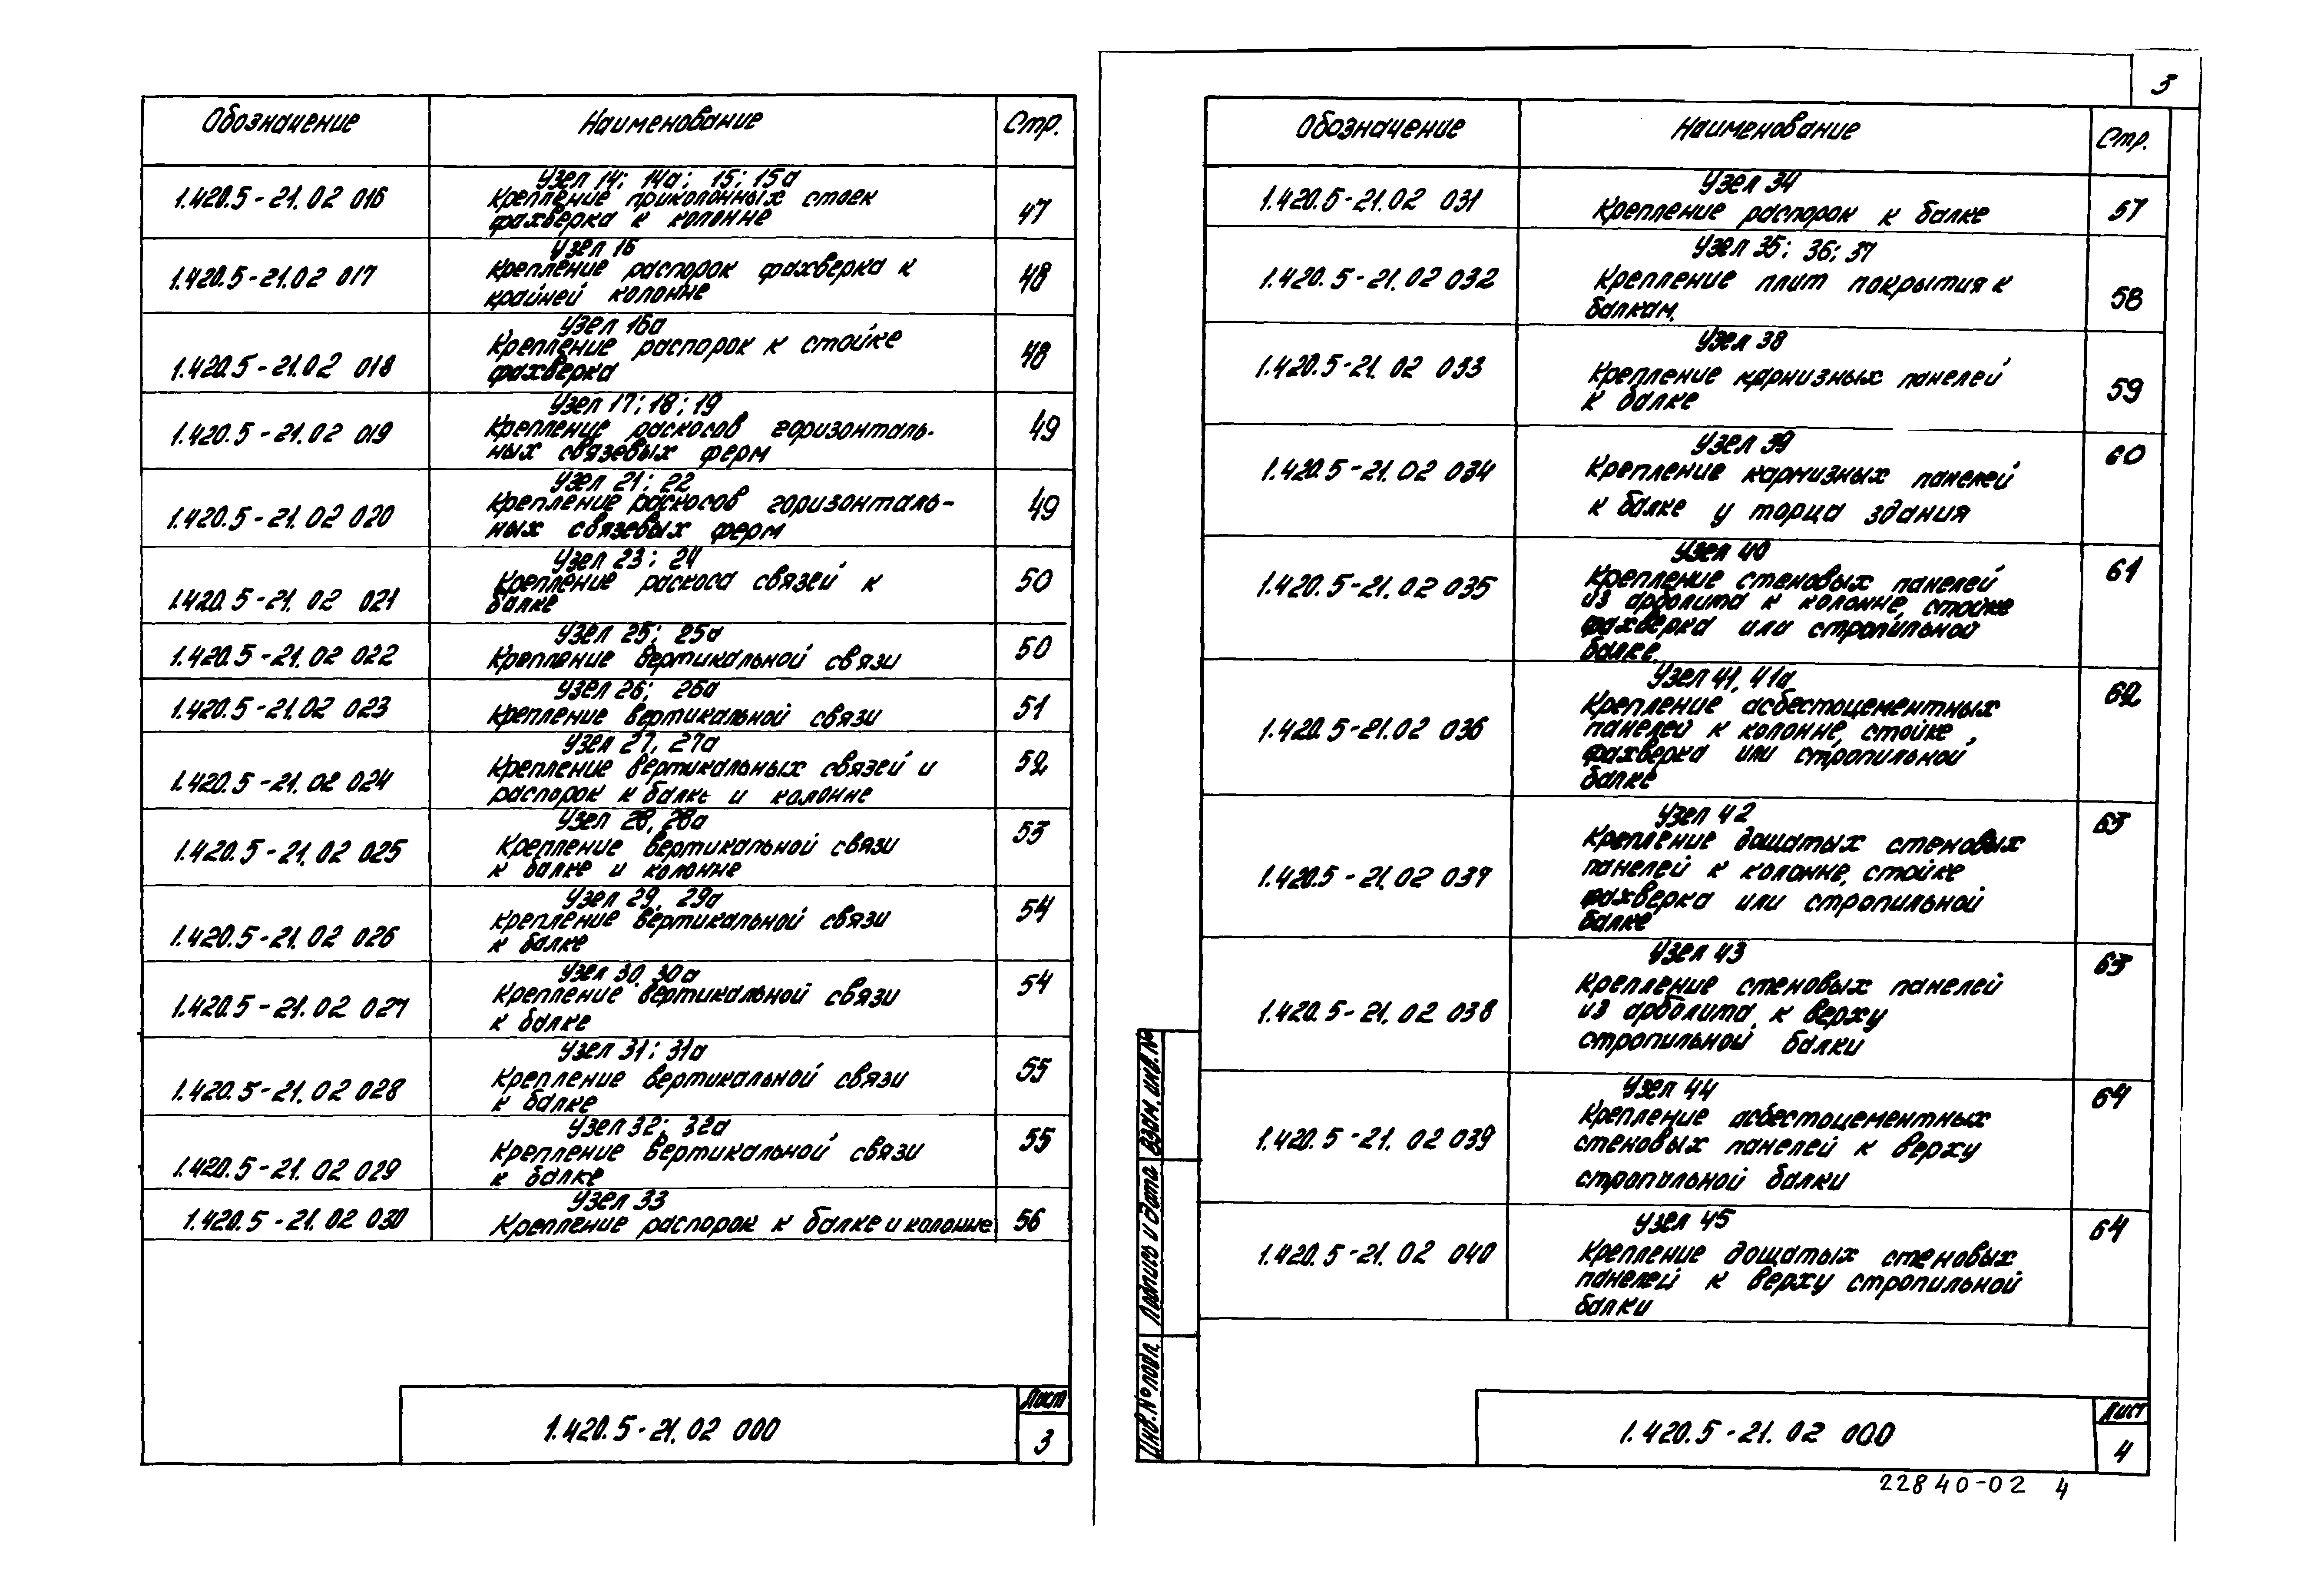 Обозначение
Наименование
Стр.
1.420.5-21.02 016
Узел 14; 14а; 15; 15а
Крепление приколонных стоек
фахверка к колонне
47
1.420.5-21.02 017
Узел 16
Крепление распорок фахверка к
крайней колонне
48
1.420.5-21.02 018
Узел 16а
Крепление распорок к стойке
фахверка
48
1.420.5-21.02 019
Узел 17; 18; 19
Крепление раскосов горизонталь-
ных связевых ферм
49
1.420.5-21.02 020
Узел 21; 22
Крепление раскосов горизонталь-
ных связевых ферм
49
1.420.5-21.02 021
Узел 23; 24
Крепление раскоса связей к
балке
50
1.420.5-21.02 022
Узел 25; 25а
Крепление вертикальной связи
50
1.420.5-21.02 023
Узел 26; 26а
Крепление вертикальной связи
51
1.420.5-21.02 024
Узел 27, 27а
Крепление вертикальных связей и
распорок к балке и колонне
52
1.420.5-21.02 025
Узел 28, 28а
Крепление вертикальной связи
к балке и колонне
53
1.420.5-21.02 026
Узел 29, 29а
Крепление вертикальной связи
к балке
54
1.420.5-21.02 027
Узел 30, 30а
Крепление вертикальной связи
к балке
54
1.420.5-21.02 028
Узел 31; 31а
Крепление вертикальной связи
к балке
55
1.420.5-21.02 029
Узел 32; 32а
Крепление вертикальной связи
к балке
55
1.420.5-21.02 030
Узел 33
Крепление распорок к балке и колонне
56
1.420.5-21.02 000
Лист
3
3
Обозначение
Наименование
Стр.
1.420.5-21.02 031
Узел 34
Крепление распорок к балке
57
1.420.5-21.02 032
Узел 35; 36; 37
Крепление плит покрытия к
балкам.
58
1.420.5-21.02 033
Узел 38
Крепление карнизных панелей
к балке
59
1.420.5-21.02 034
Узел 39
Крепление карнизных панелей
к балке у торца здания
60
1.420.5-21.02 035
Узел 40
Крепление стеновых панелей
из арболита к колонне, стойке
фахверка или стропильной
балке.
61
1.420.5-21.02 036
Узел 41, 41а
Крепление асбестоцементных
панелей к колонне, стойке,
фахверка или стропильной
балке
62
1.420.5-21.02 037
Узел 42
Крепление дощатых стеновых
панелей к колонне, стойке
фахверка или стропильной
балке
63
1.420.5-21.02 038
Узел 43
Крепление стеновых панелей
из арболита к верху
стропильной балки
63
1.420.5-21.02 039
Узел 44
Крепление асбестоцементных
стеновых панелей к верху
стропильной балки
64
1.420.5-21.02 040
Узел 45
Крепление дощатых стеновых
панелей к верху стропильной
балки
64
Инв. № подл.
Подпись и дата
Взам. инв. №
1.420.5-21.02 000
Лист
4
22840-02 4